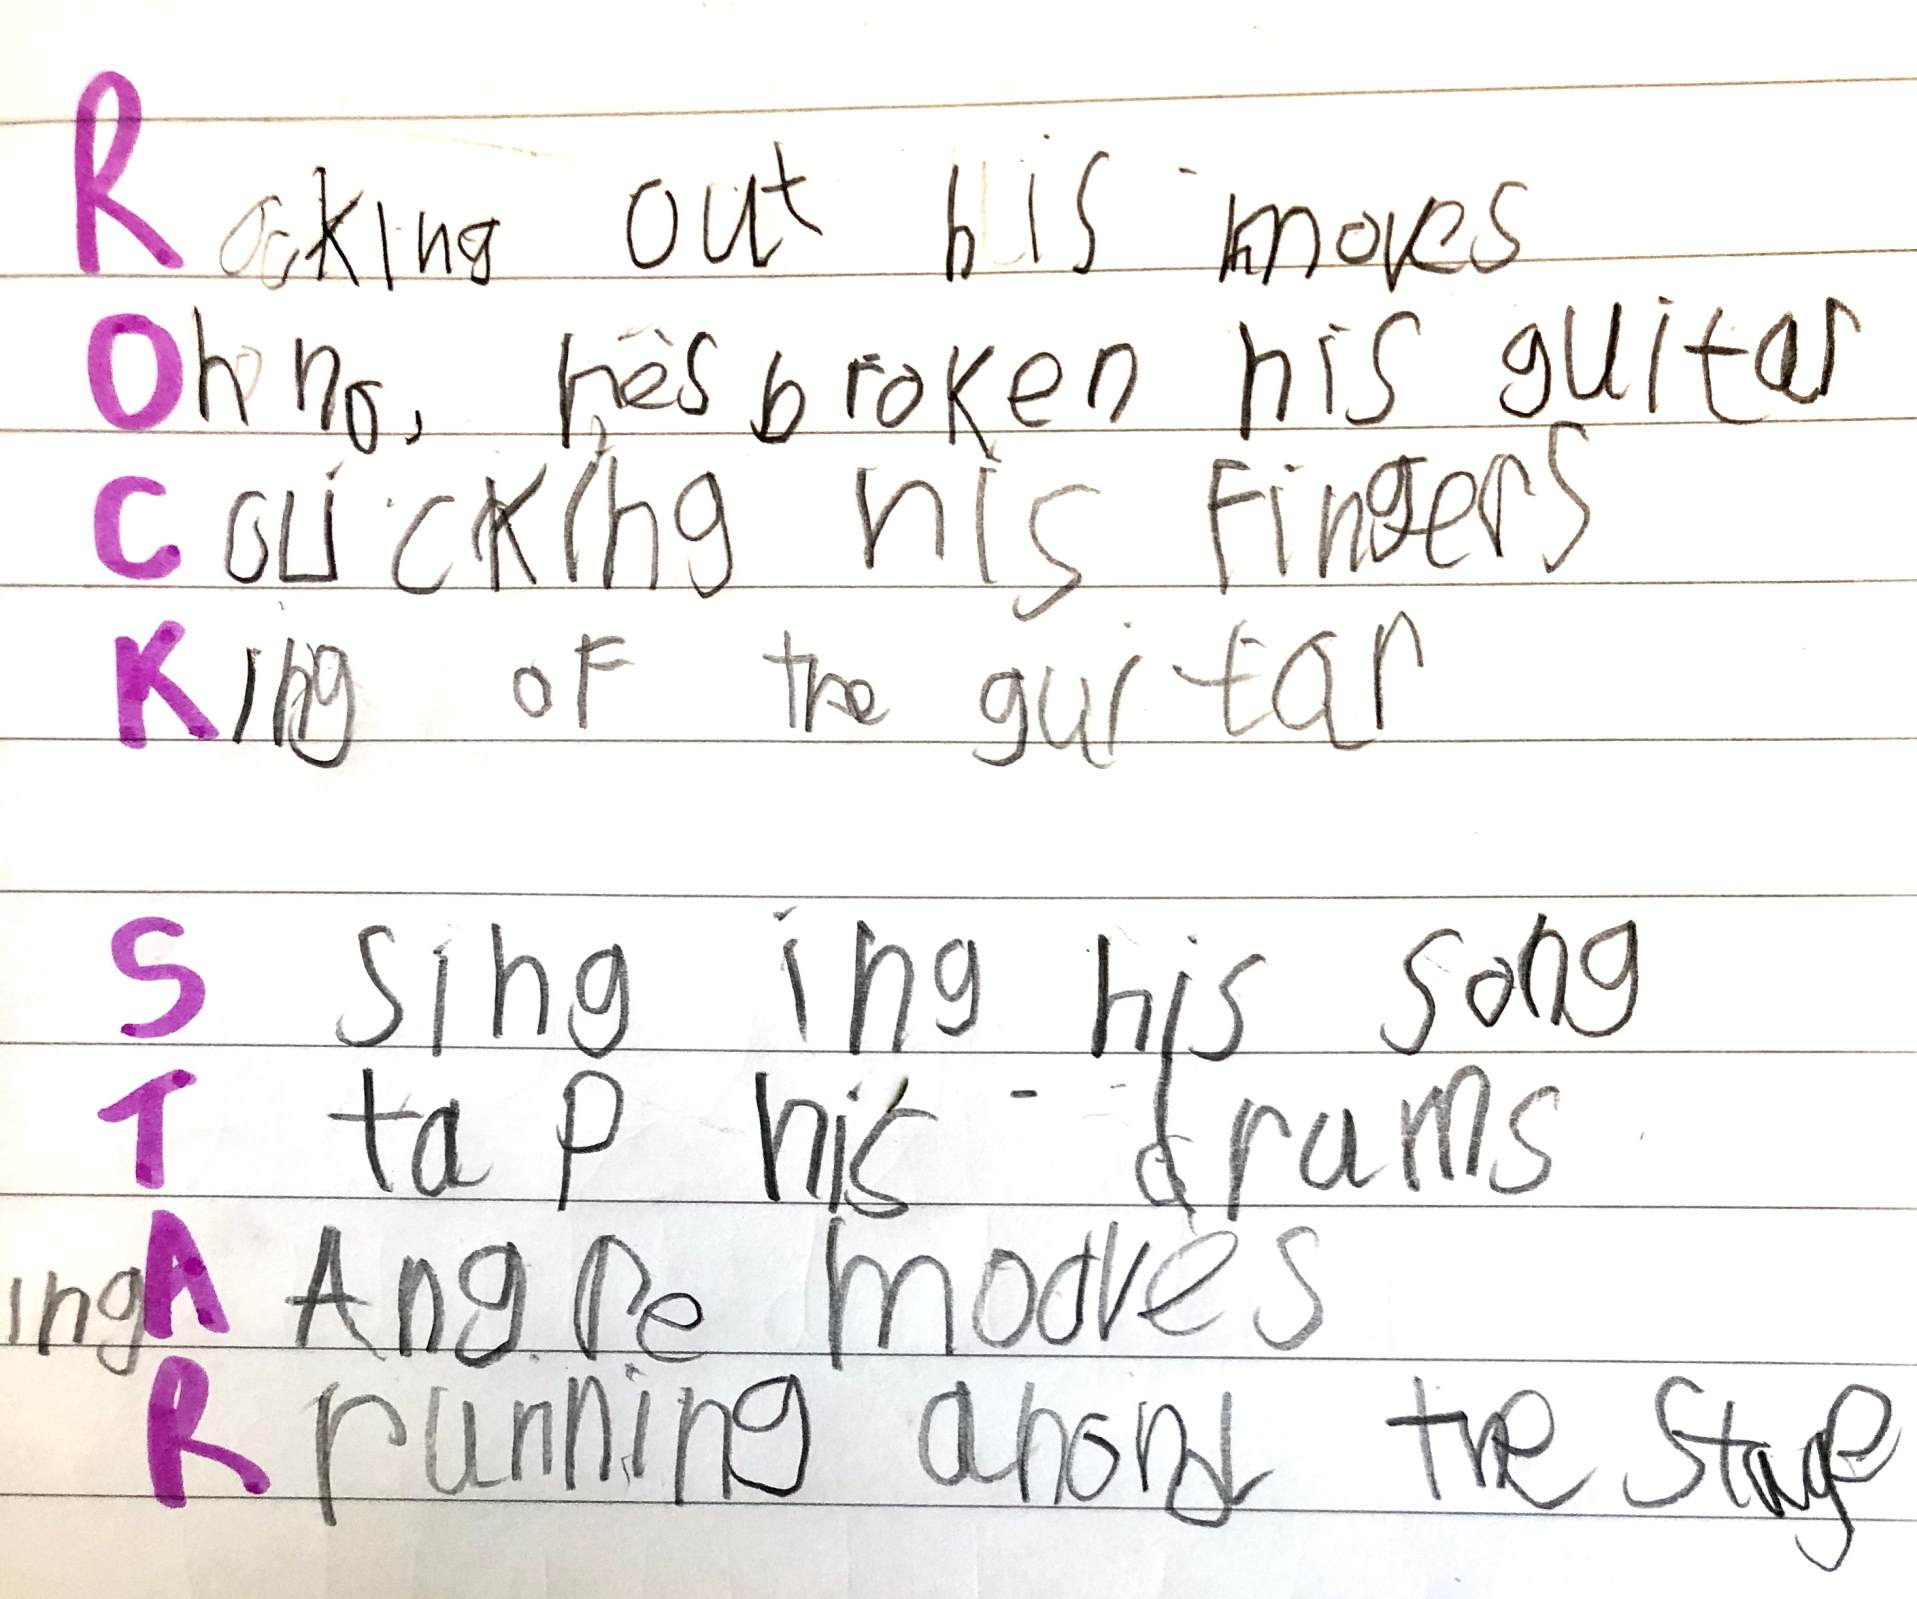 Rocking out his moves
Oh no, he's broken his guitar
Clicking his Fingers
King oF the guitar
S Singing his song
T tap his drums
ing A Angre mooves
R running arond the Stage